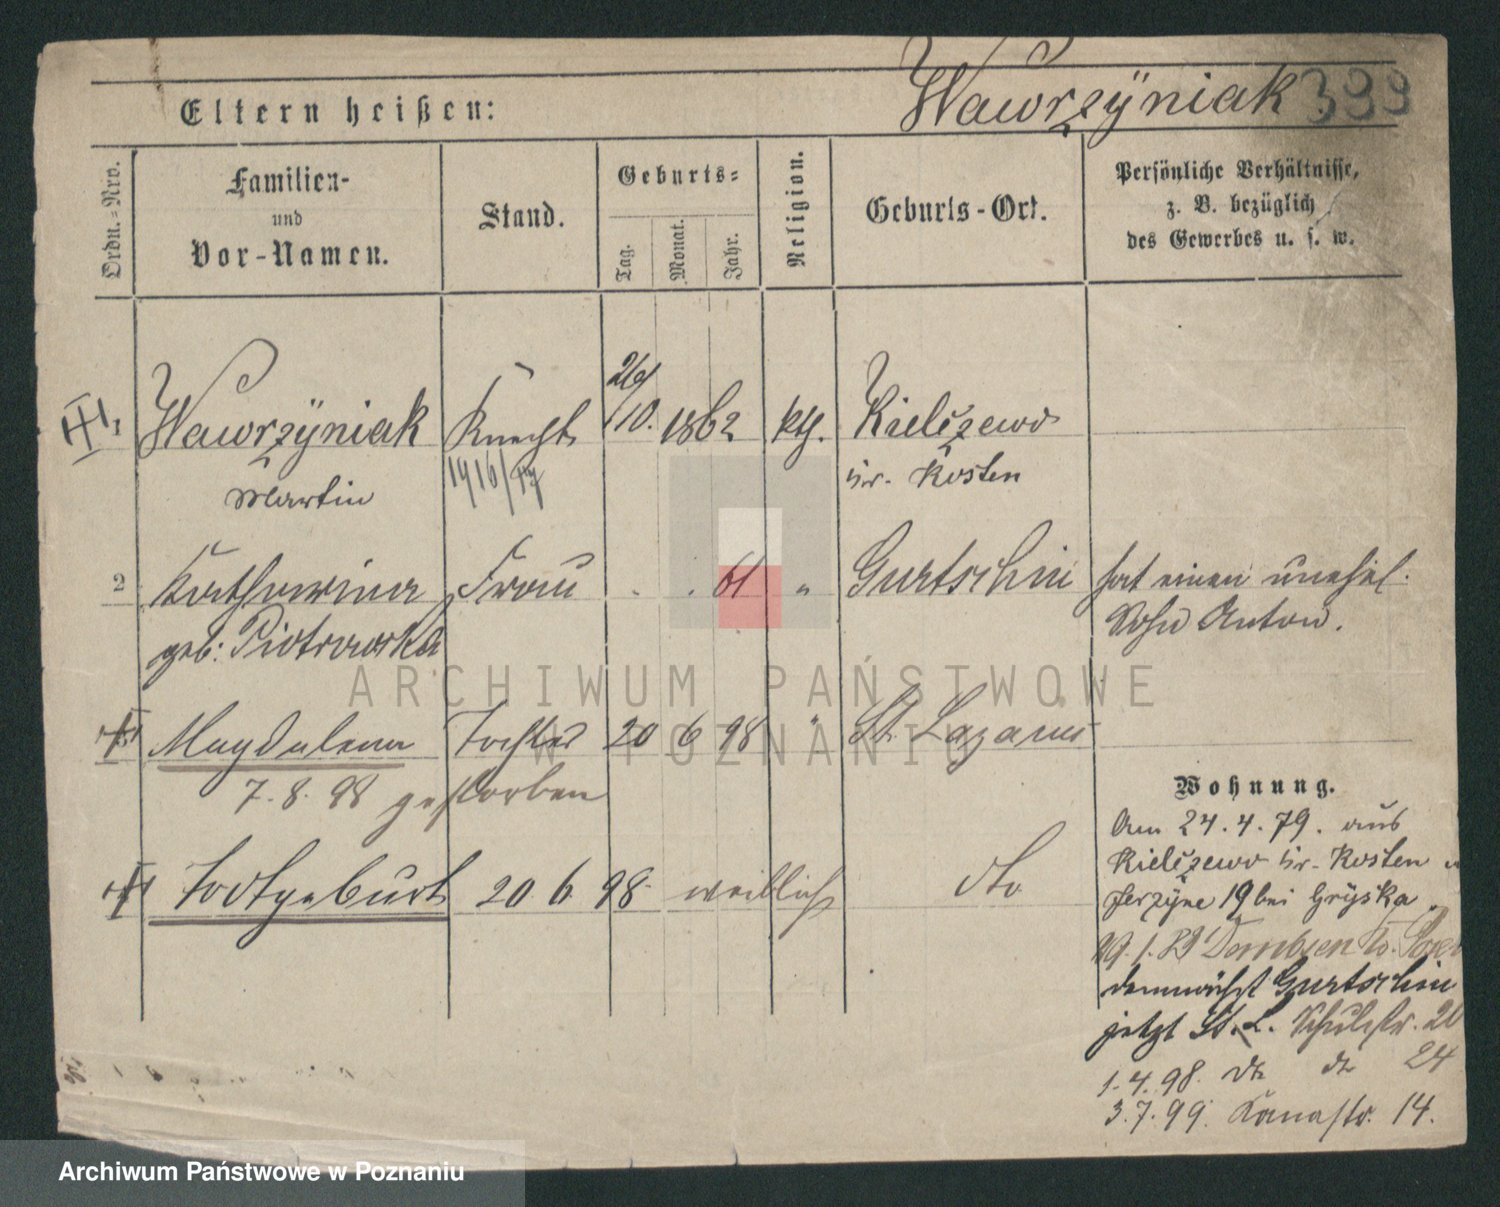 Eltern heißen:
Wawrzÿniak 399
Ordn.=Nro.
Familien-
und
Vor-Namen.
Stand.
Geburts=
Tag.
Monat.
Jahr.
Religion.
Geburts-Ort.
Persönliche Verhältnisse,
z. B. bezüglich
des Gewerbes u. s. w.
1 Wawrzÿniak Knecht 26/10. 1862 kth. Kielczewo
Martin 1916/17 Kr. Kosten
2 Katharina Frau . . 61 " Gurtschin hat einen unehel.
geb: Piotrowska Sohn Anton.
Magdalena Tochter 20 6 98 " St. Lazarus
7. 8. 98 gestorben
Todtgeburt 20. 6. 98. weiblich dto
Wohnung.
Am 24. 4. 79. aus
Kielczewo Kr. Kosten
Jerzÿce 19 bei Grÿska
19. 1. Dombsen
demnächst Gurtschin
jetzt St. L. Schulstr. 20
1. 4. 98. dto dto 24
3. 7. 99. Kanalstr. 14.
ARCHIWUM PAŃSTWOWE
W POZNANIU
Archiwum Państwowe w Poznaniu